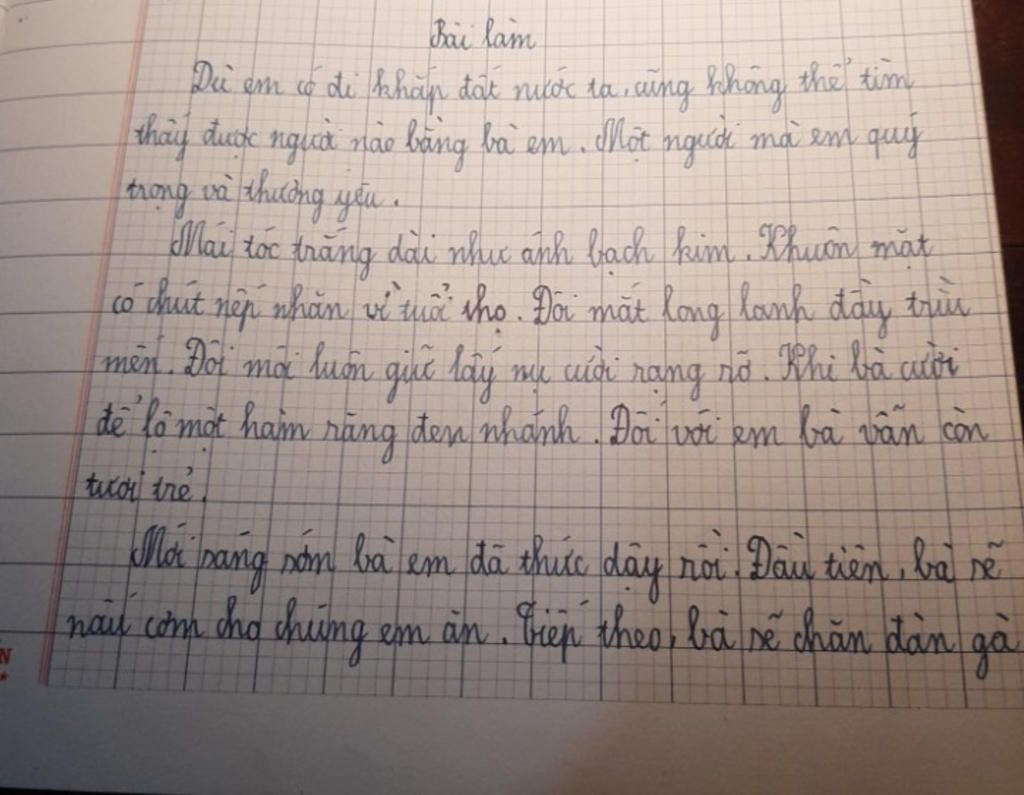 Bài làm
Dù em có đi khắp đất nước ta, cũng không thể tìm
thấy được người nào bằng bà em. Một người mà em quý
trọng và thương yêu.
Mái tóc trắng dài như ánh bạch kim. Khuôn mặt
có chút nếp nhăn vì tuổi thọ. Đôi mắt long lanh đầy trìu
mến. Đôi môi luôn giữ lấy nụ cười rạng rỡ. Khi bà cười
để lộ một hàm răng đen nhánh. Đối với em bà vẫn còn
tươi trẻ.
Mới sáng sớm bà em đã thức dậy rồi. Đầu tiên, bà sẽ
nấu cơm cho chúng em ăn. Tiếp theo, bà sẽ chăn đàn gà
N